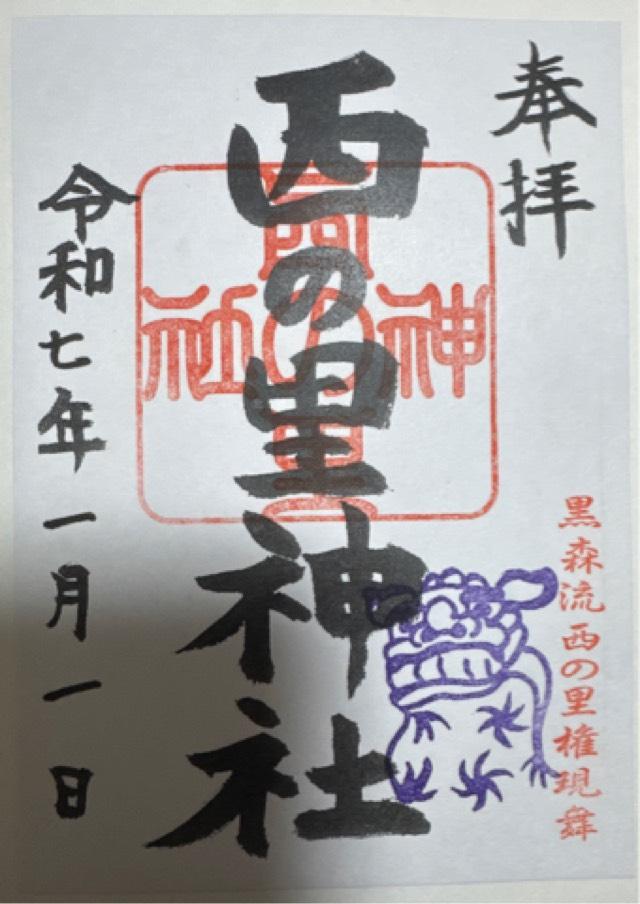 奉拝
西の里神社
黒森流 西の里権現舞
令和七年一月一日